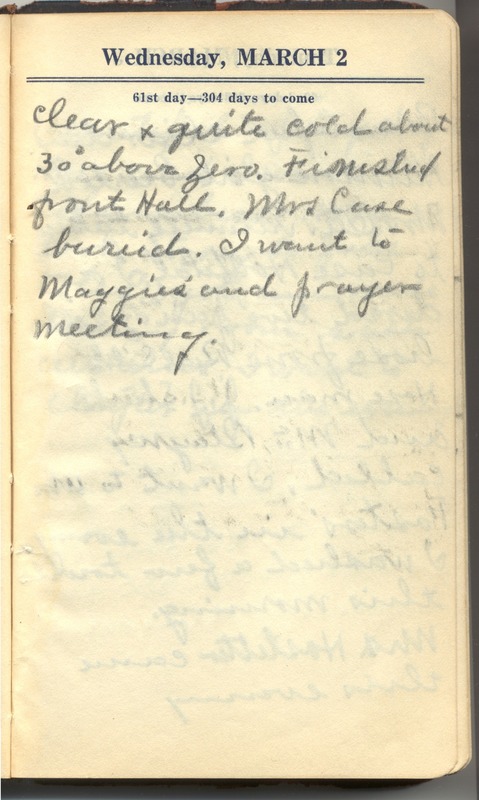 Wednesday, MARCH 2
61st day—304 days to come
Clear & quite cold about
30° above Zero. Finished
front Hall. Mrs Case
buried. I want to
Maggies and prayer
meeting.